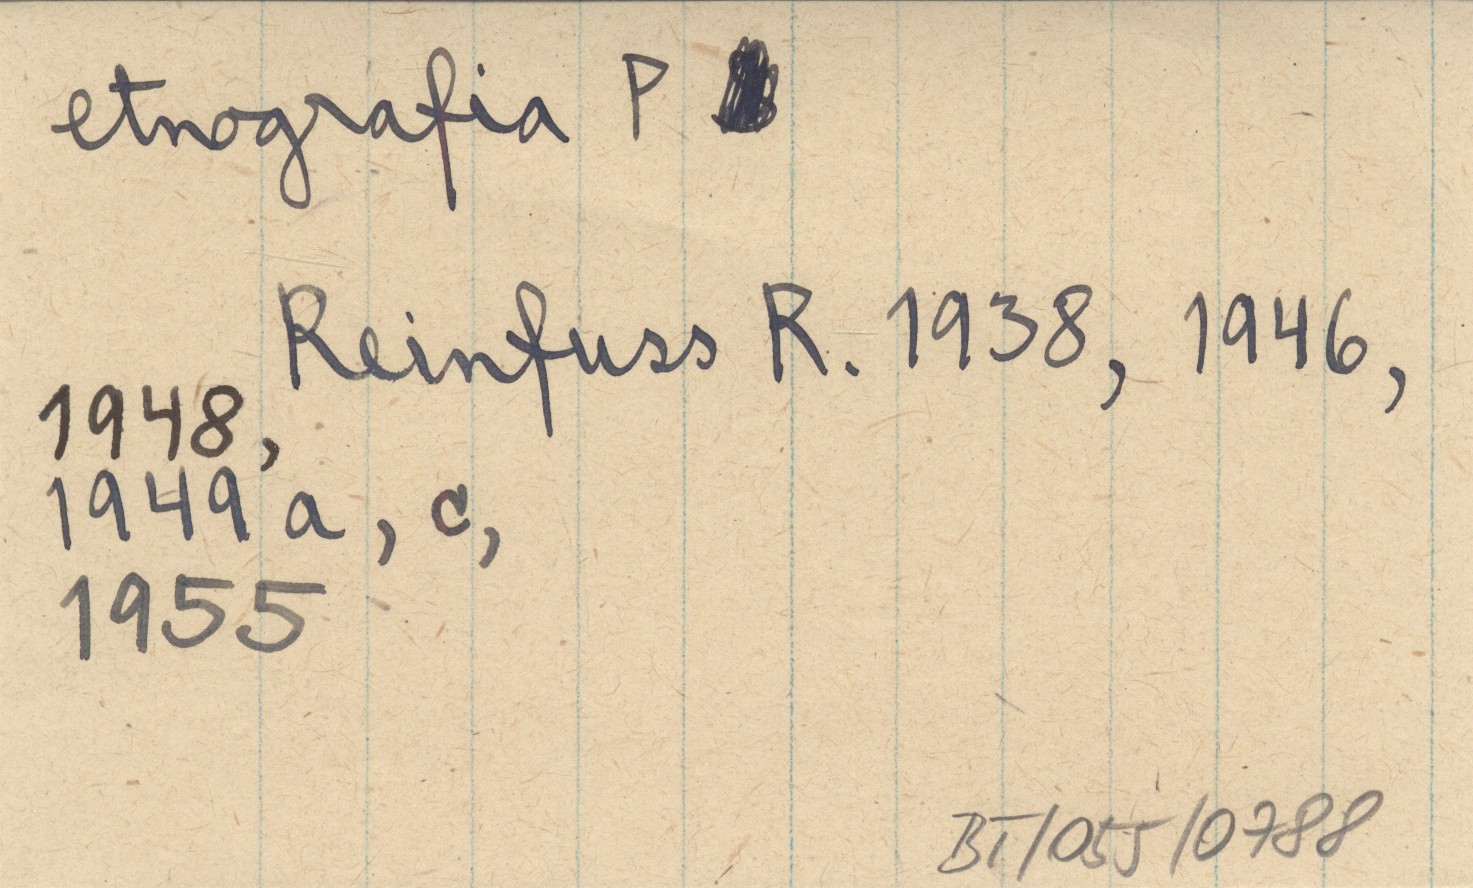 etnografia P
Reinfuss R. 1938, 1946,
1948,
1949 a, c,
1955
BT/055/0788